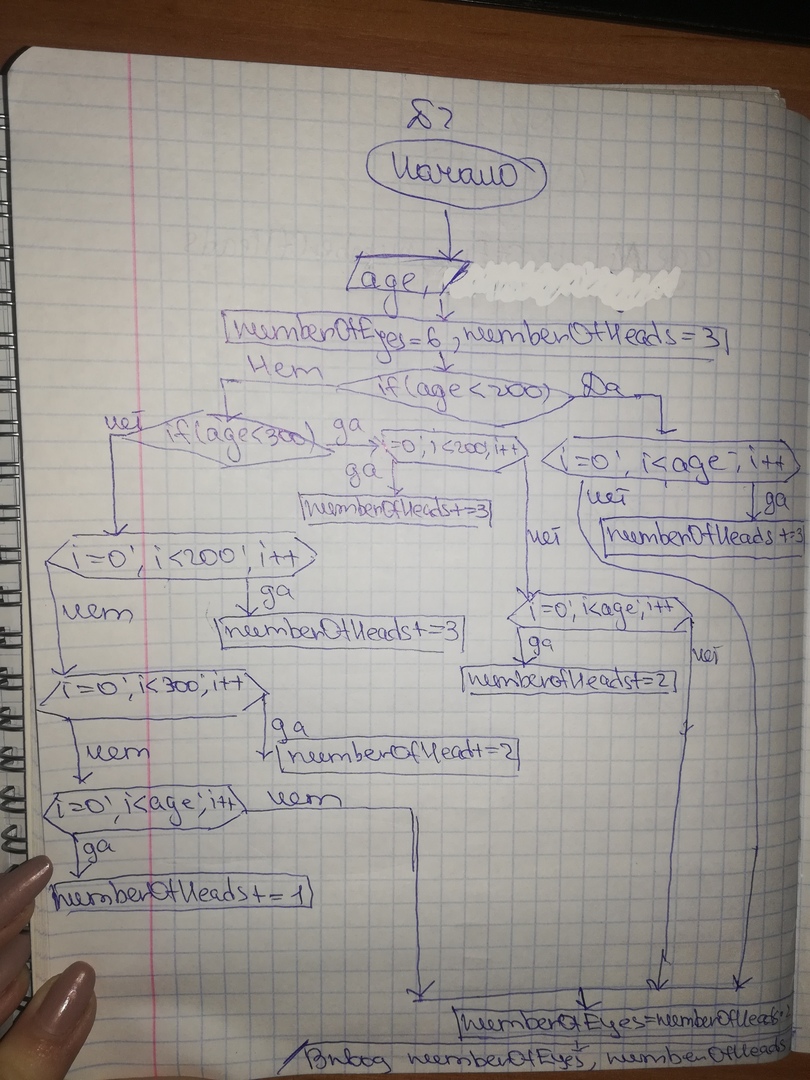 Д2
Начало
age,
numberOfEyes=6, numberOfHeads=3
Нет
if(age<200)
Да
нет
if(age<300)
да
i=0; i<200; i++
i=0; i<age; i++
да
numberOfHeads+=3
нет
да
numberOfHeads+=3
i=0; i<200; i++
нет
нет
да
numberOfHeads+=3
i=0; i<age; i++
да
нет
numberofHeads+=2
i=0; i<300; i++
нет
да
numberOfHead+=2
i=0; i<age; i++
нет
да
numberOfHeads+=1
numberOfEyes=numberOfHeads
Вывод numberOfEyes, numberOfHeads